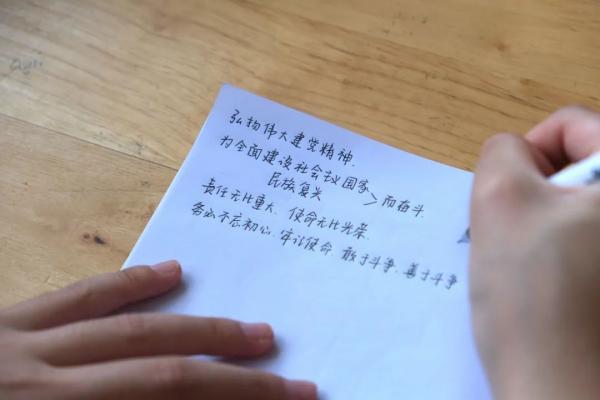 弘扬伟大建党精神.
为全面建设社会主义国家
民族复兴 > 而奋斗.
责任无比重大、使命无比光荣.
务必不忘初心、牢记使命、敢于斗争、善于斗争